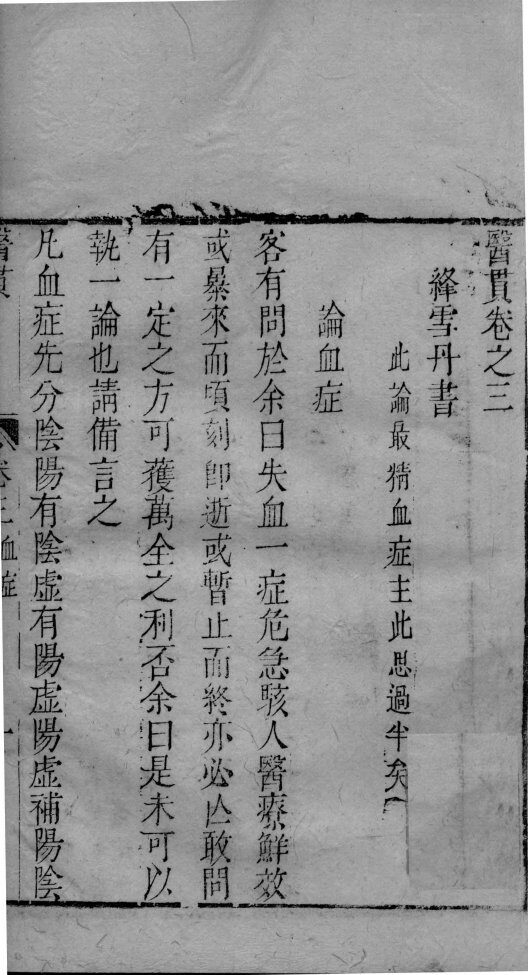 醫貫卷之三
絳雪丹書
此論最精血症主此思過半矣
論血症
客有問於余曰失血一症危急駭人醫療鮮效
或暴來而頃刻卽逝或暫止而終亦必亡敢問
有一定之方可獲萬全之利否余曰是未可以
執一論也請備言之
凡血症先分陰陽有陰虛有陽虛陽虛補陽陰
醫貫 卷三血症 一